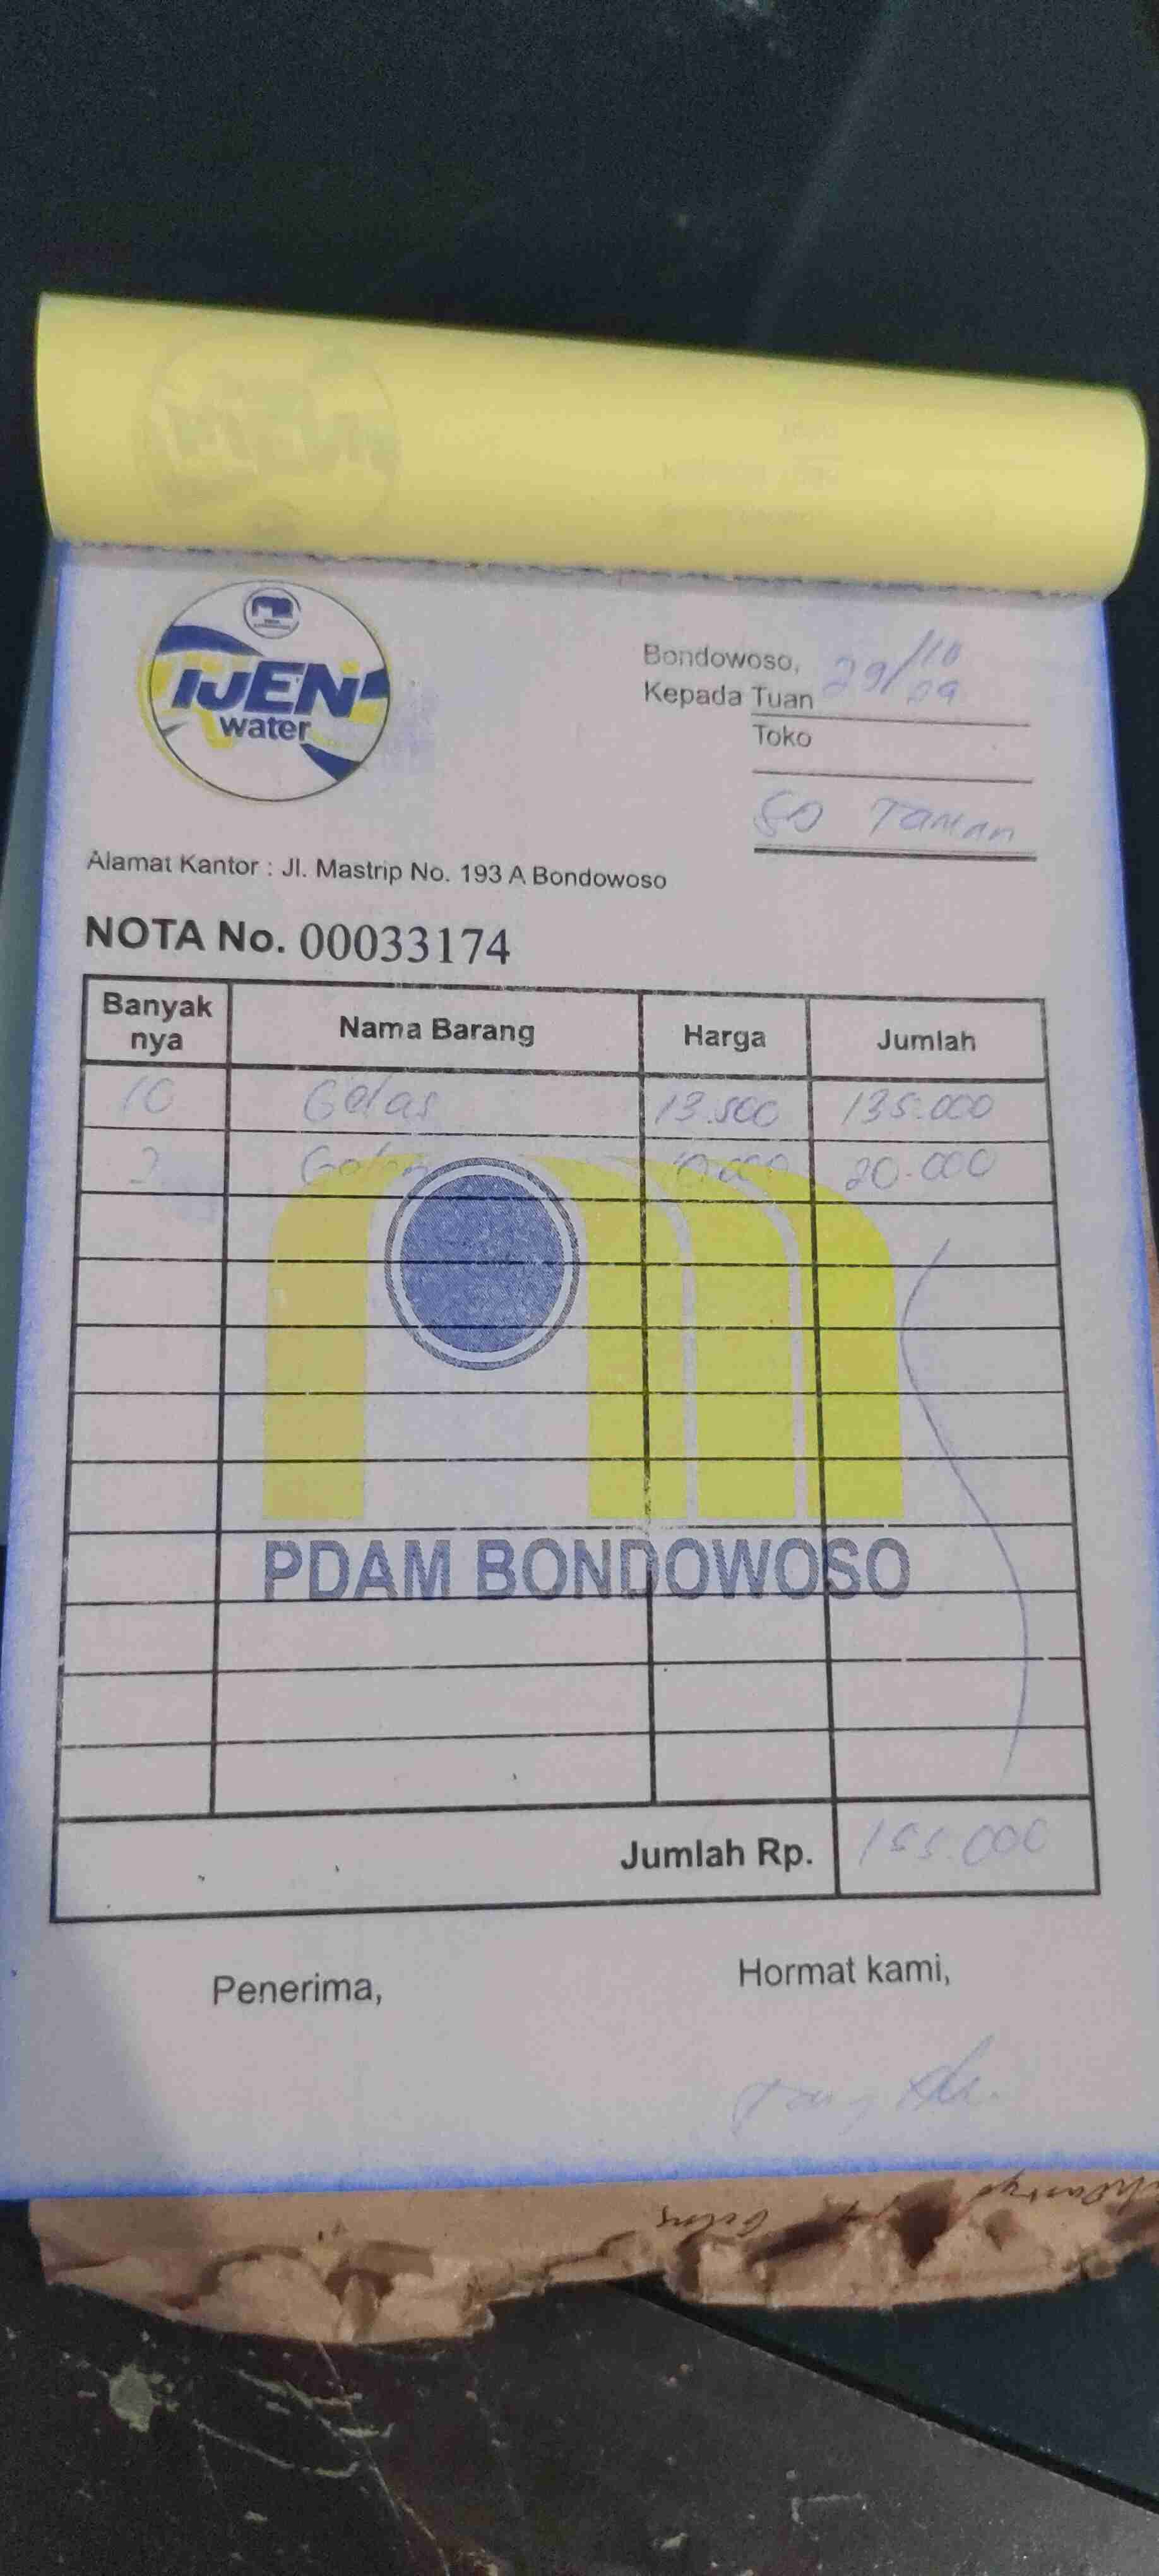 IJEN
water
Bondowoso, 29/10
Kepada Tuan
Toko
SO Taman
Alamat Kantor : Jl. Mastrip No. 193 A Bondowoso
NOTA No. 00033174
Banyak nya Nama Barang Harga Jumlah
10 Gelas 13.500 135.000
2 Galon 10.000 20.000
PDAM BONDOWOSO
Jumlah Rp. 155.000
Penerima, Hormat kami,